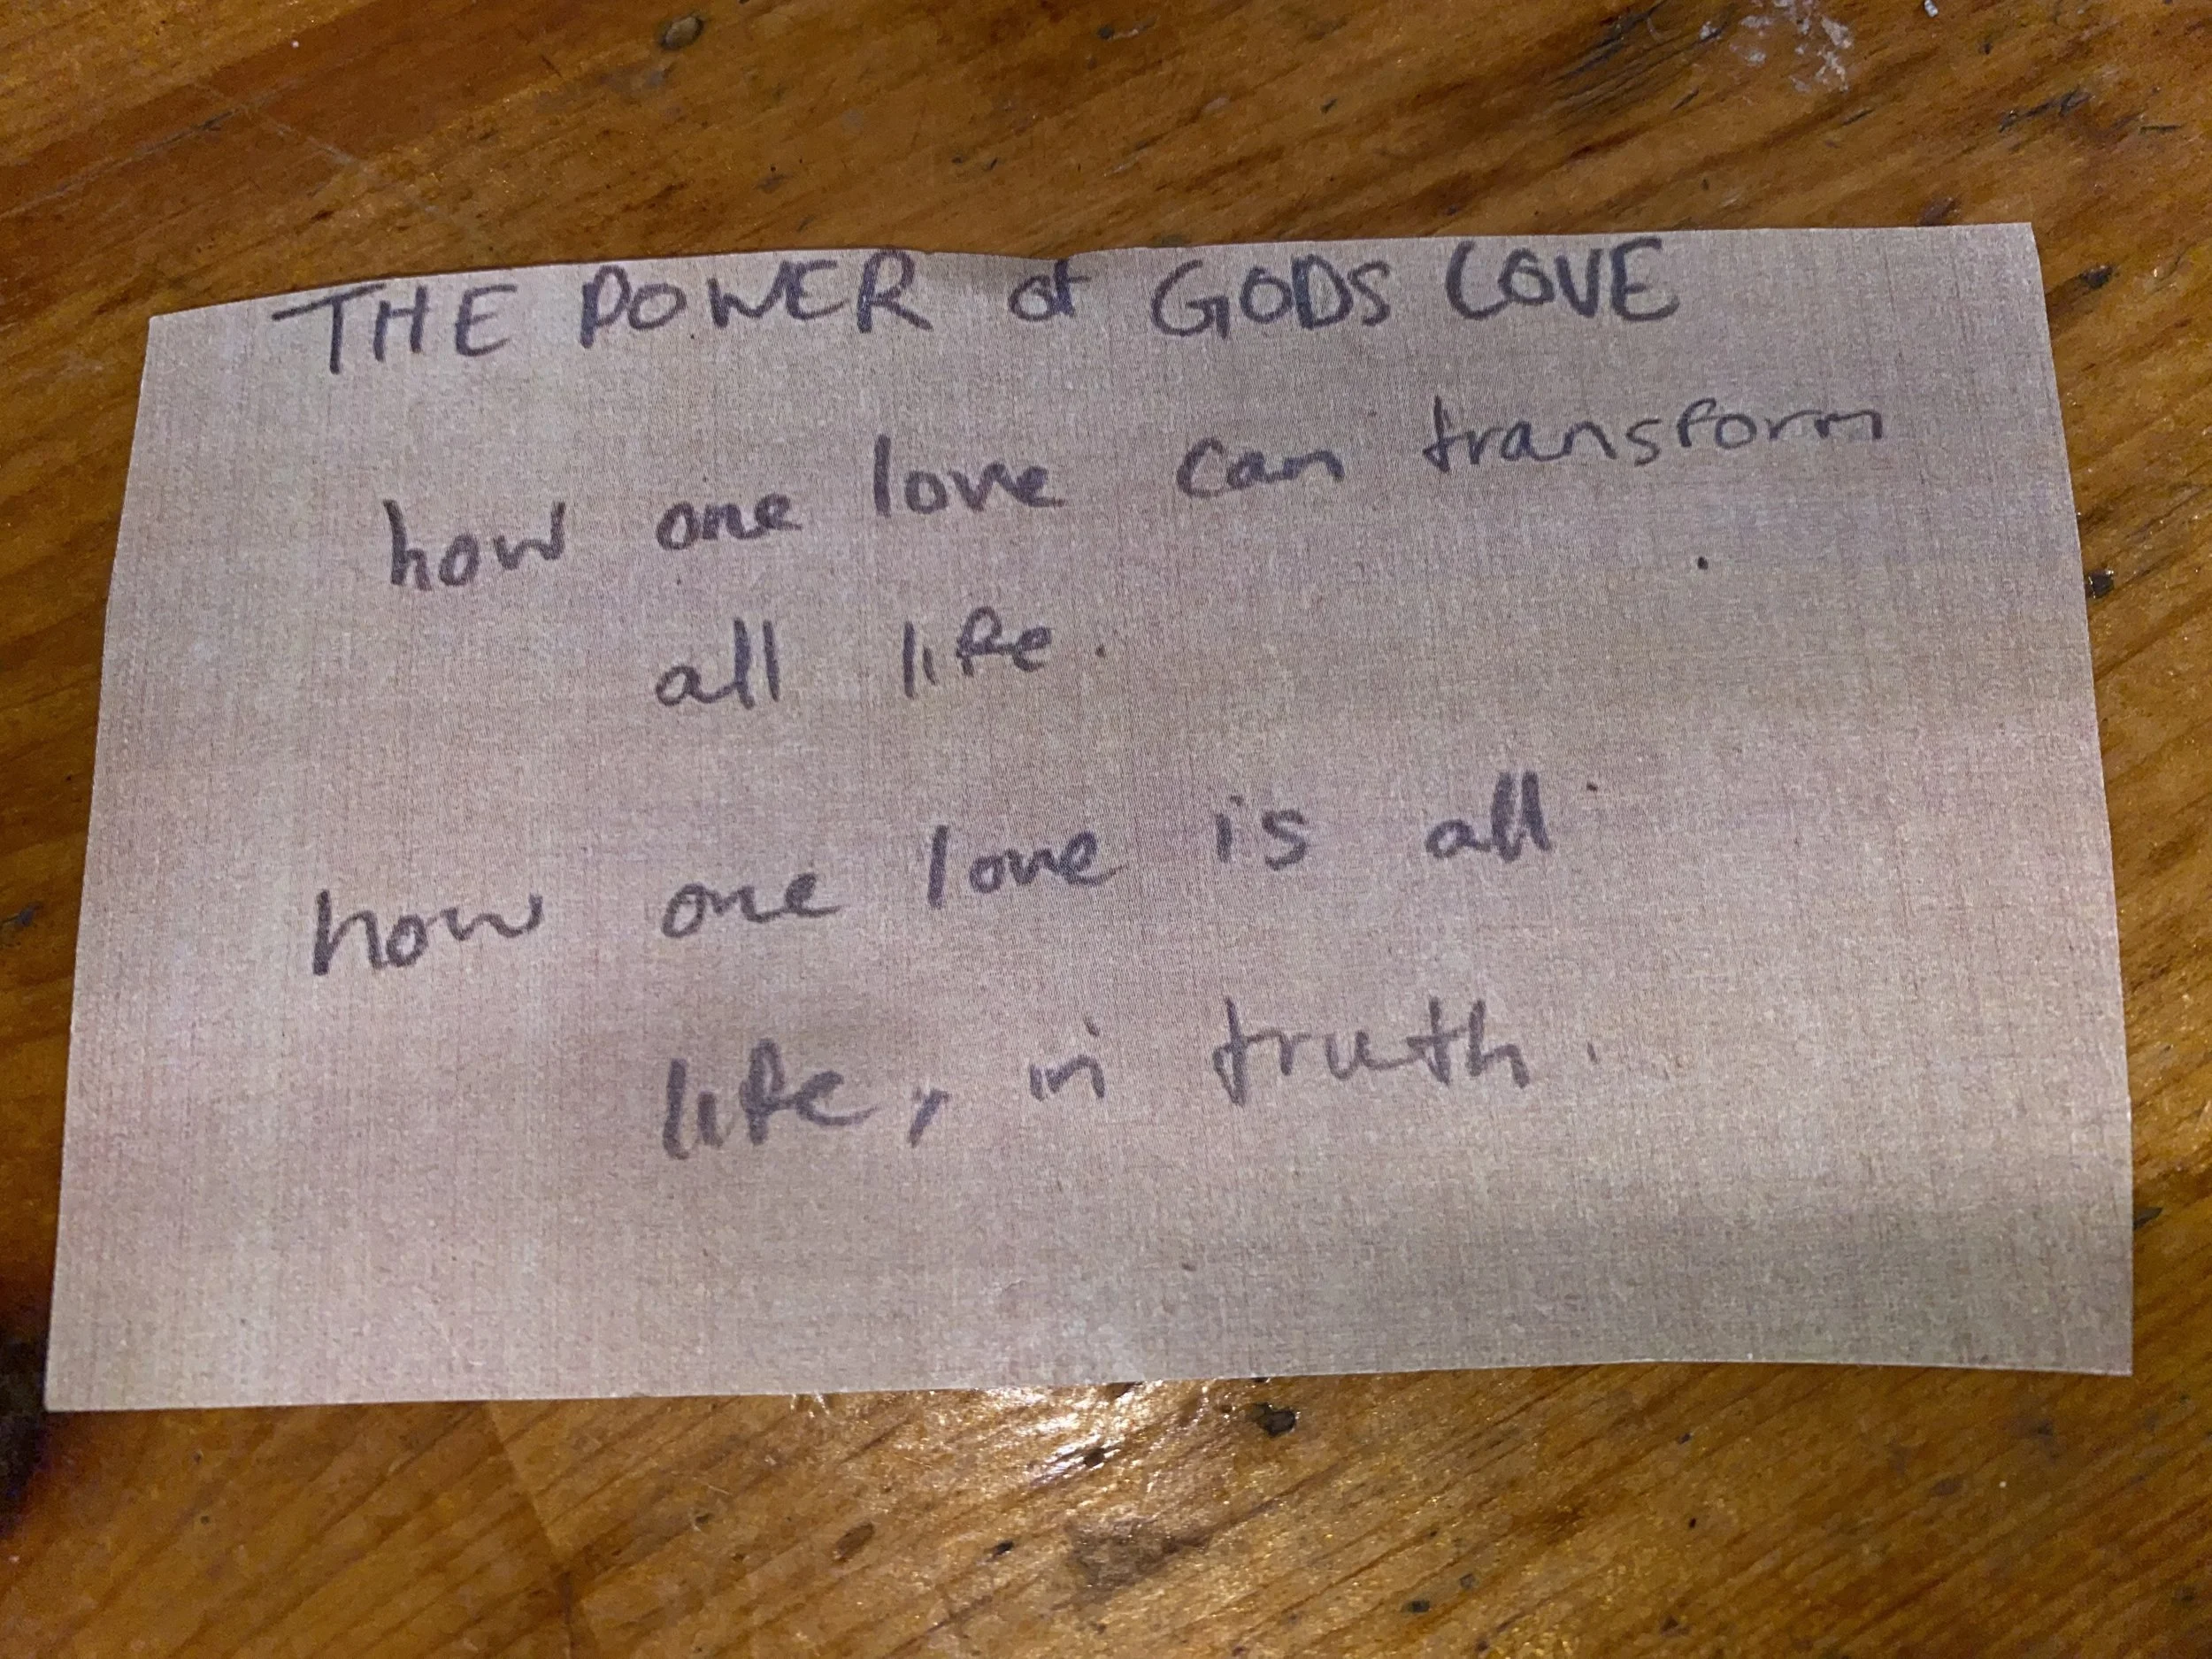 THE POWER of GODS LOVE
how one love can transform
all life.
how one love is all
life, in truth.